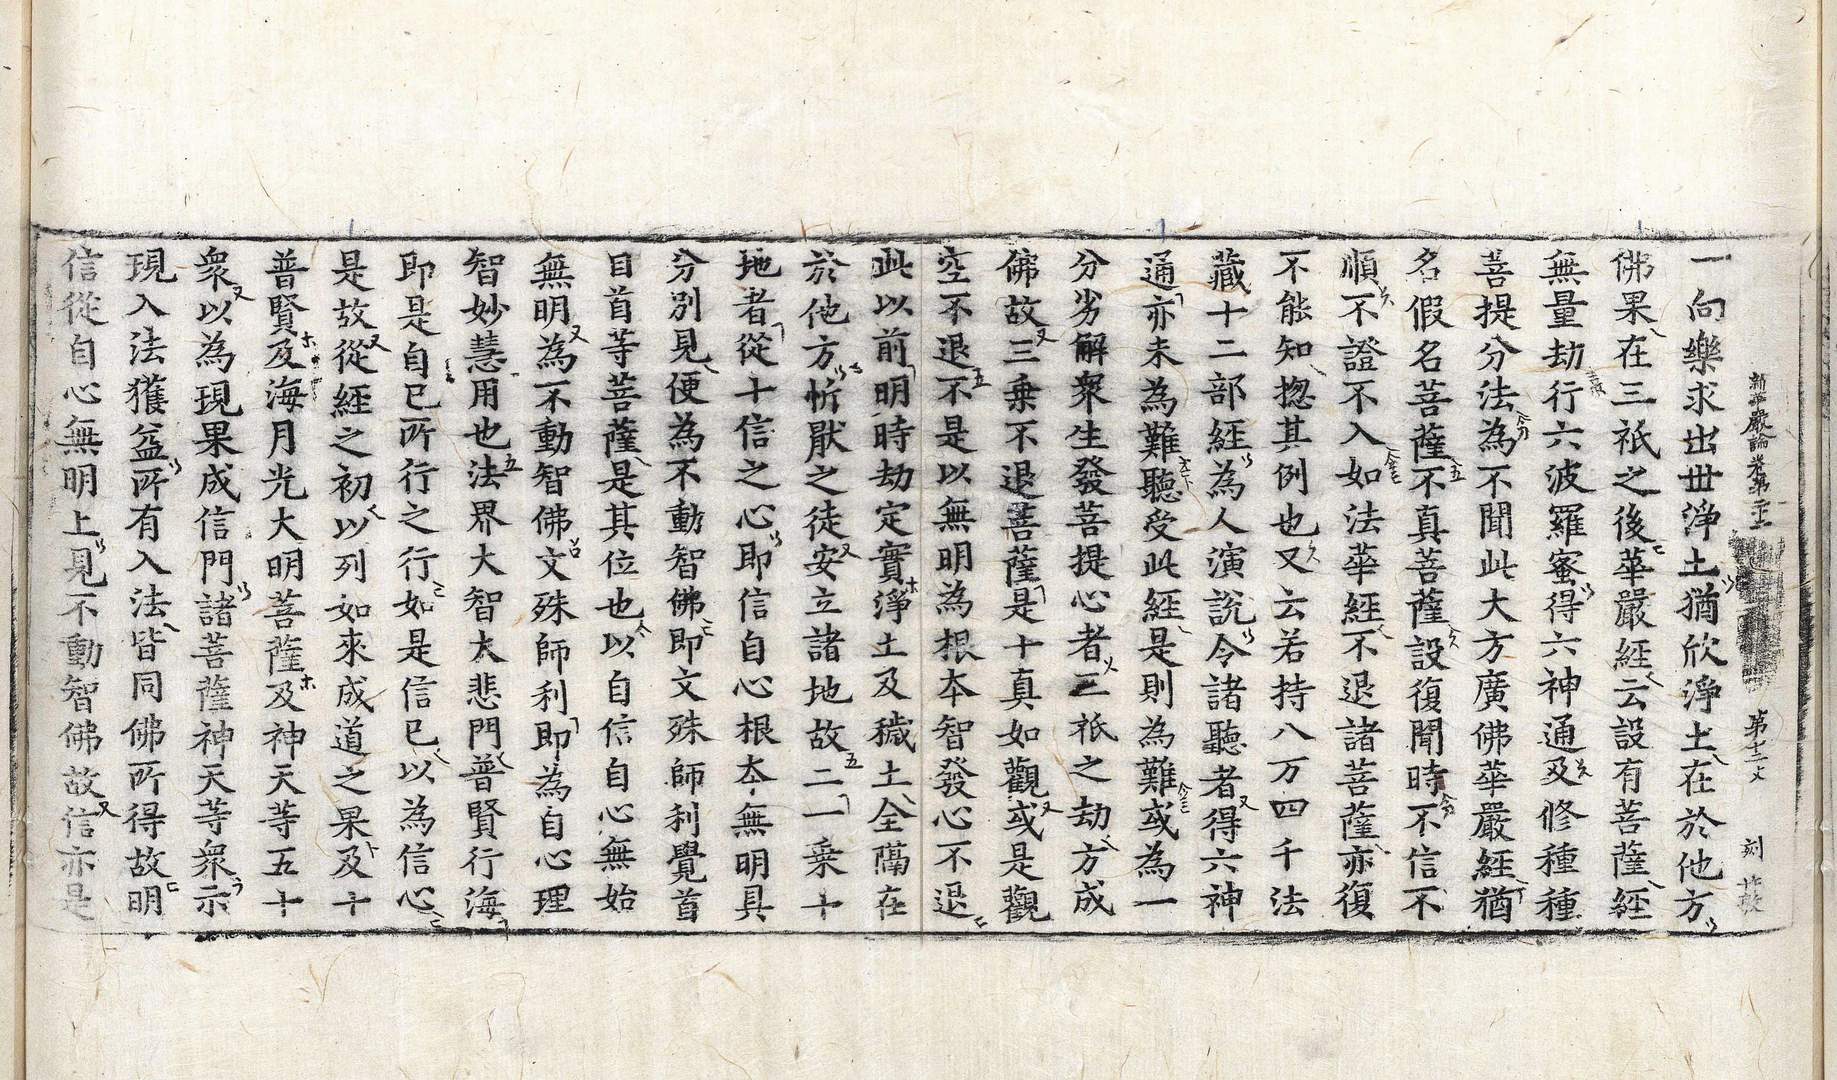 新華嚴論卷第二十 第十二丈 刻
一向樂求出世淨土猶欣淨土在於他方
佛果在三祇之後華嚴經云設有菩薩經
無量劫行六波羅蜜得六神通及修種種
菩提分法為不聞此大方廣佛華嚴經猶
名假名菩薩不真菩薩設復聞時不信不
順不證不入如法華經不退諸菩薩亦復
不能知揔其例也又云若持八万四千法
藏十二部經為人演說令諸聽者得六神
通亦未為難聽受此經是則為難或為一
分劣解衆生發菩提心者三祇之劫方成
佛故三乗不退菩薩是十真如觀或是觀
空不退不是以無明為根本智發心不退
此以前明時劫定實淨土及穢土全隔在
於他方忻猒之徒安立諸地故二一乗十
地者從十信之心即信自心根本無明具
分別見便為不動智佛即文殊師利覺首
目首等菩薩是其位也以自信自心無始
無明為不動智佛文殊師利即為自心理
智妙慧用也法界大智大悲門普賢行海
即是自已所行之行如是信已以為信心
是故從經之初以列如來成道之果及十
普賢及海月光大明菩薩及神天等五十
衆以為現果成信門諸菩薩神天等衆示
現入法獲益所有入法皆同佛所得故明
信從自心無明上見不動智佛故信亦是